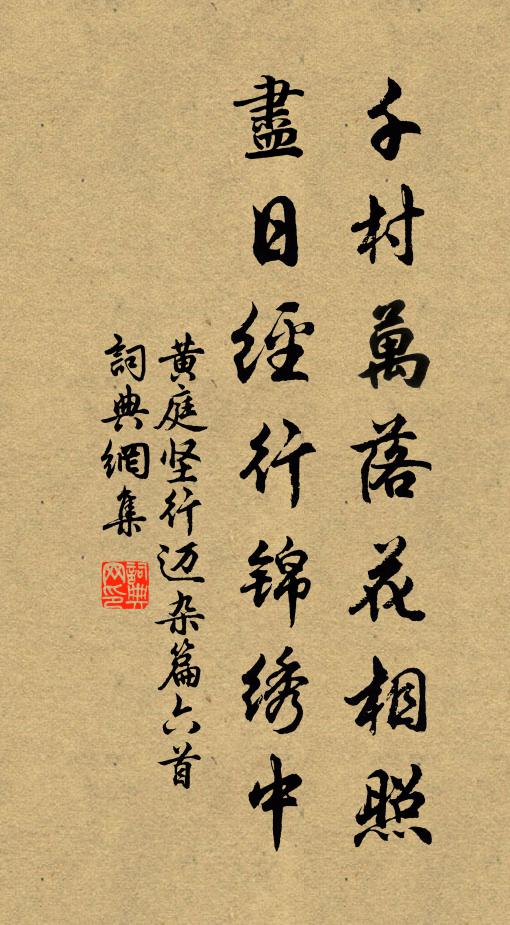 千村萬落花相照
盡日經行锦绣中
黄庭坚行迈杂篇六首
詞典網集
詞典网印